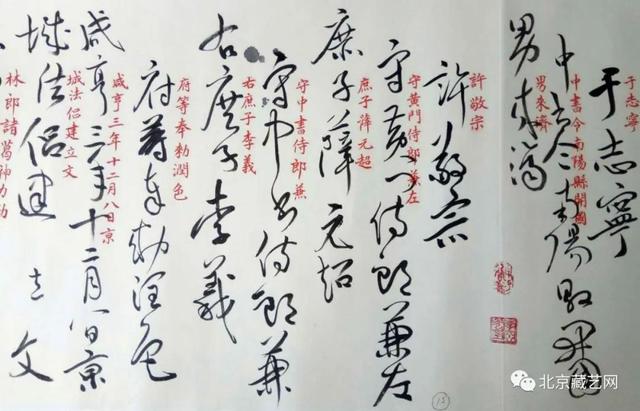 于志寧
于志寧
中書令南陽縣開國
中書令南陽縣開國
男來濟
男來濟
許敬宗
許敬宗
守黄門侍郎兼左
守黄門侍郎兼左
庶子薛元超
庶子薛元超
守中書侍郎兼
守中書侍郎兼
右庶子李義
右庶子李義
府等奉勅潤色
府等奉勅潤色
咸亨三年十二月八日京
咸亨三年十二月八日京
城法侣建立文
城法侣建立文
林郎諸葛神力勒
15
北京藏艺网